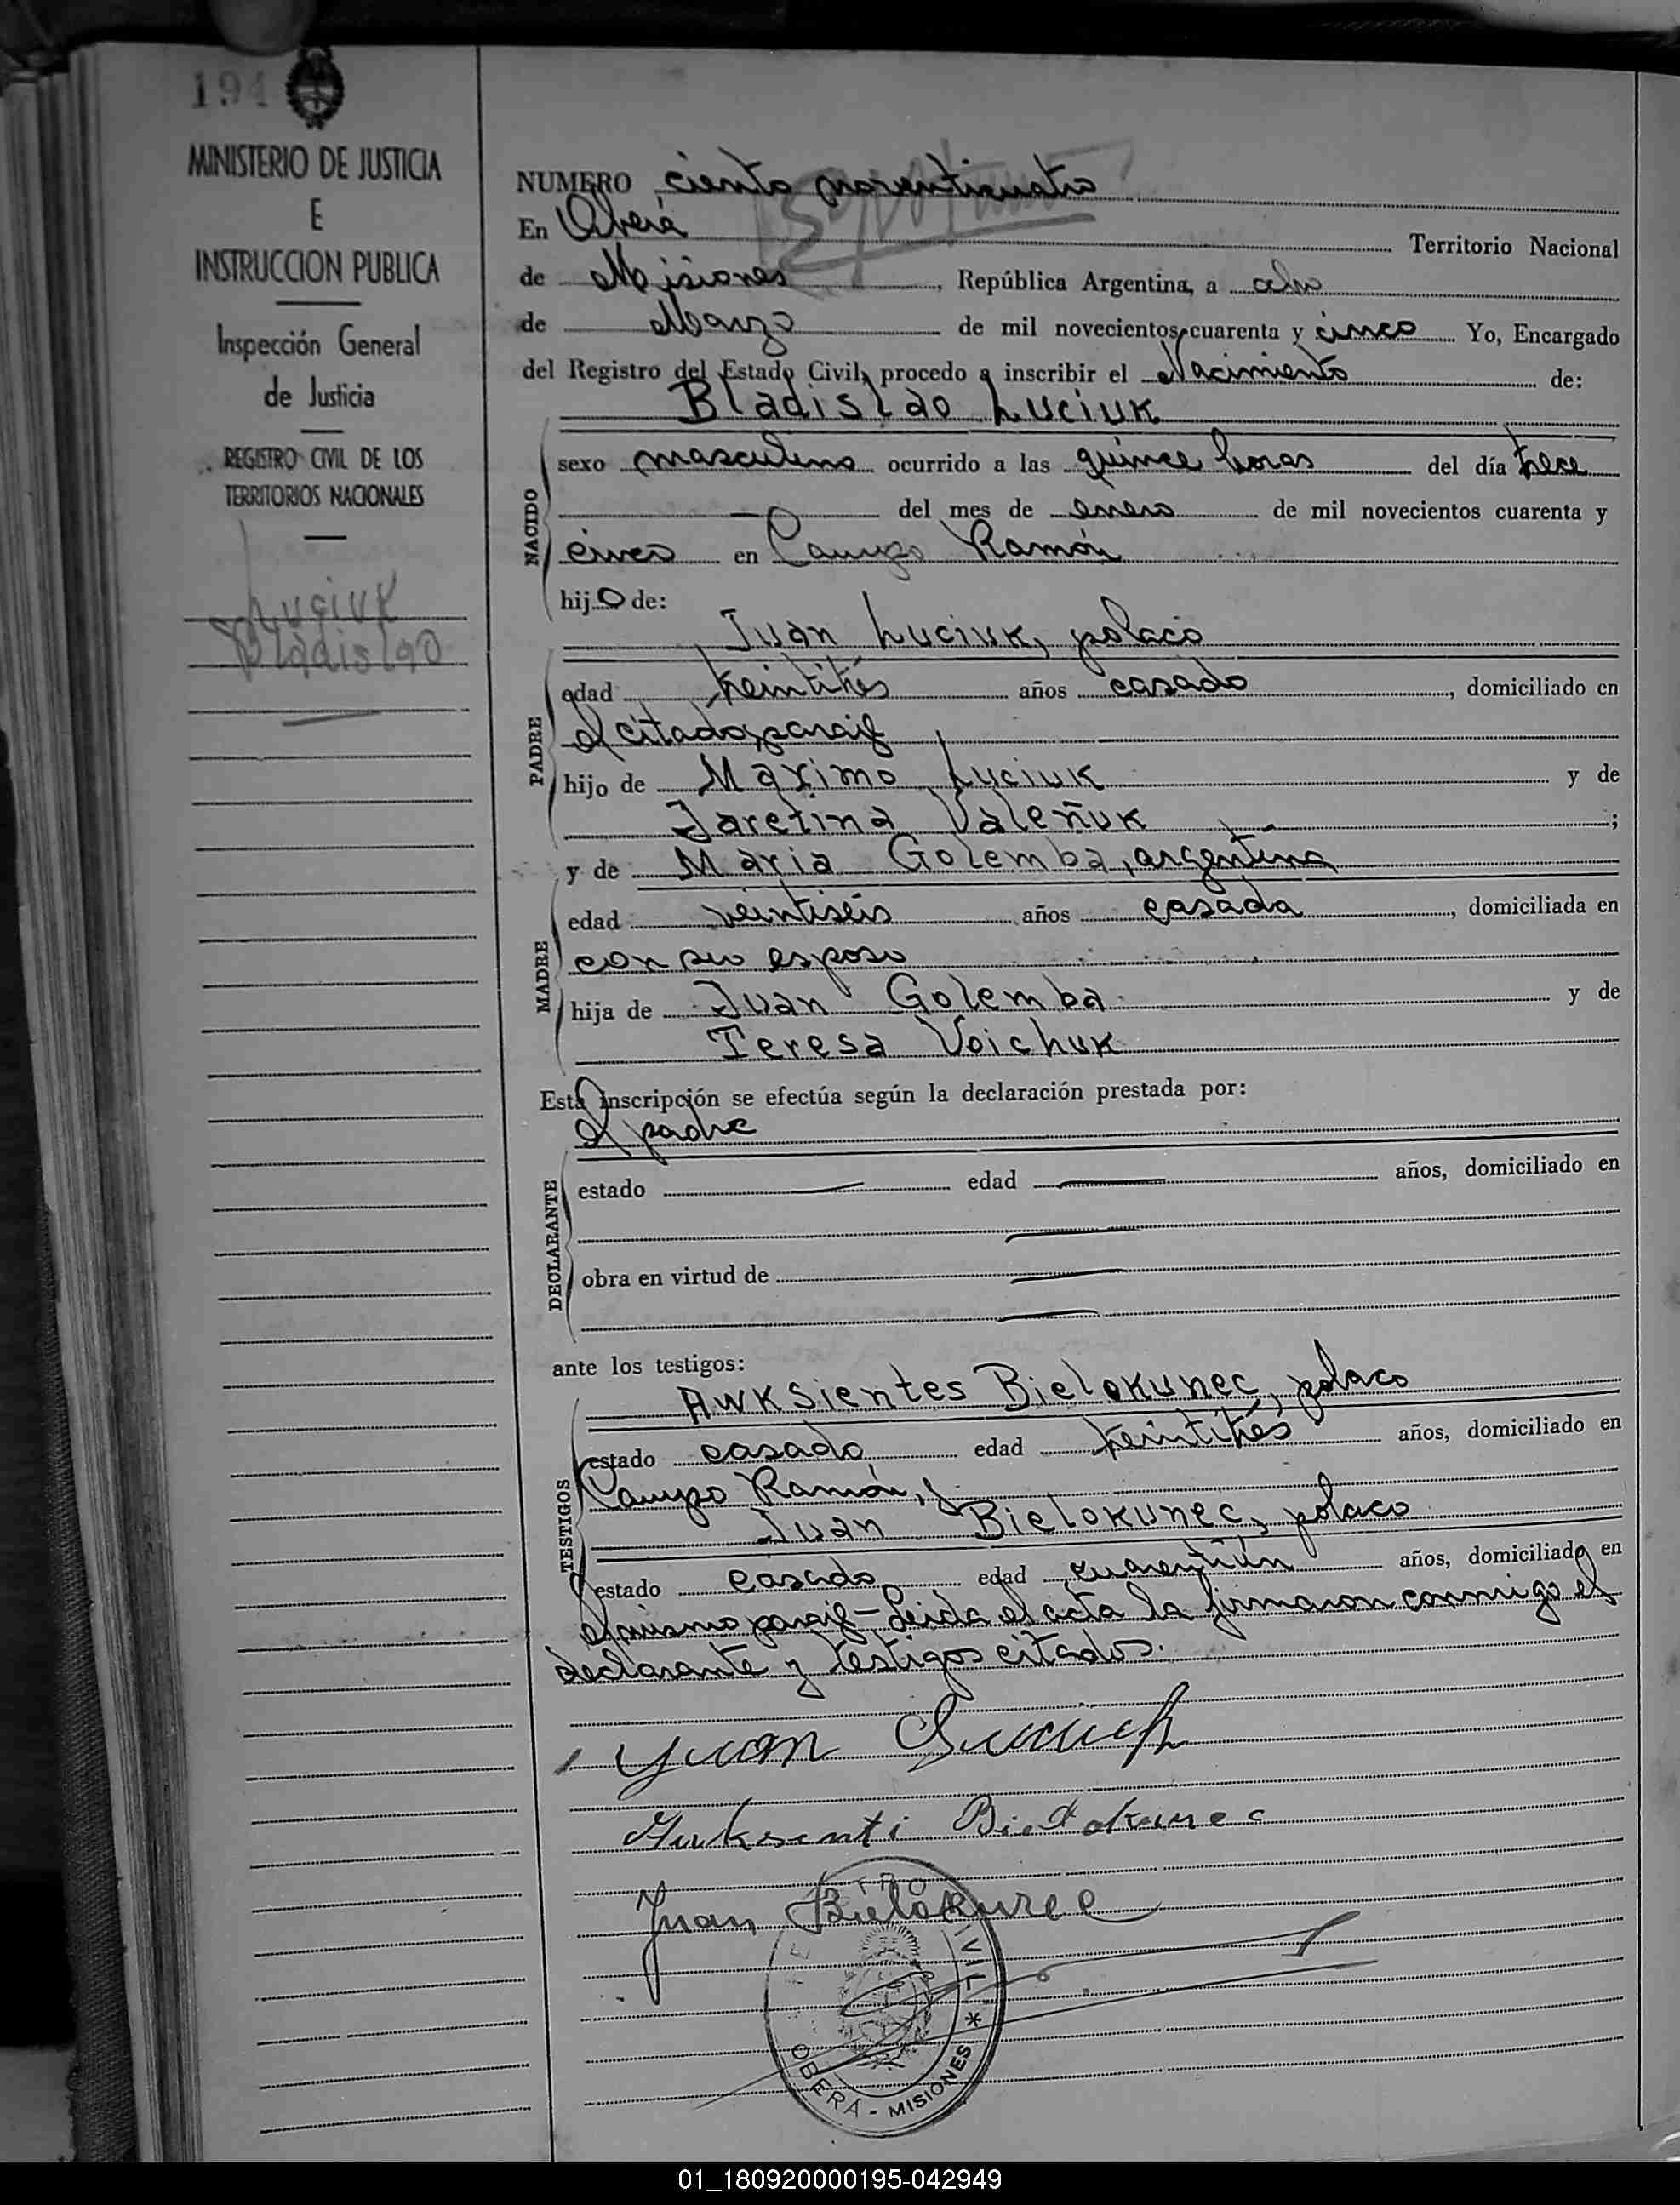 194
MINISTERIO DE JUSTICIA
E
INSTRUCCION PUBLICA
Inspección General
de Justicia
REGISTRO CIVIL DE LOS
TERRITORIOS NACIONALES
Luciuk
Bladislao
NUMERO ciento noventicuatro
En Oberá Territorio Nacional
de Misiones, República Argentina, a ocho
de Marzo de mil novecientos cuarenta y cinco Yo, Encargado
del Registro del Estado Civil, procedo a inscribir el Nacimiento de:
Bladislao Luciuk
NACIDO
sexo masculino ocurrido a las quince horas del día trece
— del mes de enero de mil novecientos cuarenta y
cinco en Campo Ramón
hijo de:
Juan Luciuk, polaco
PADRE
edad treintitrés años casado, domiciliado en
el citado paraje
hijo de Máximo Luciuk y de
Jaretina Valeñuk ;
y de Maria Golemba, argentina
MADRE
edad veintiséis años casada, domiciliada en
con su esposo
hija de Juan Golemba y de
Teresa Voichuk
Esta inscripción se efectúa según la declaración prestada por:
el padre
DECLARANTE
estado — edad — años, domiciliado en
—
obra en virtud de —
—
ante los testigos:
Awksientes Bielokunec, polaco
TESTIGOS
estado casado edad treintitrés años, domiciliado en
Campo Ramón, y
Juan Bielokunec, polaco
estado casado edad cuarentiún años, domiciliado en
el mismo paraje - Leida el acta la firmaron conmigo el
declarante y testigos citados.
Yuan Luciuk
Auksenti Bielokunec
Juan Bielokunec
CIVIL *
OBERÁ - MISIONES
01_180920000195-042949